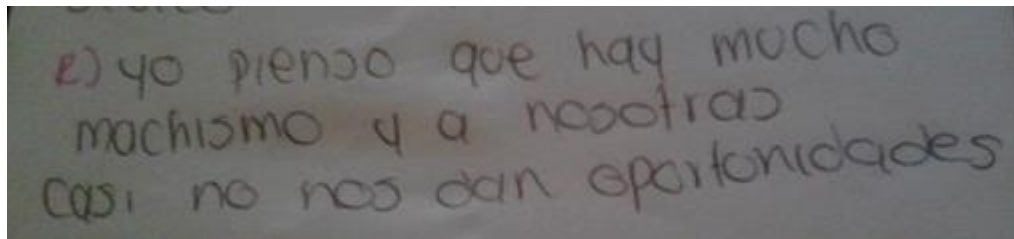 e) yo pienso que hay mucho
machismo y a nosotras
casi no nos dan oportunidades